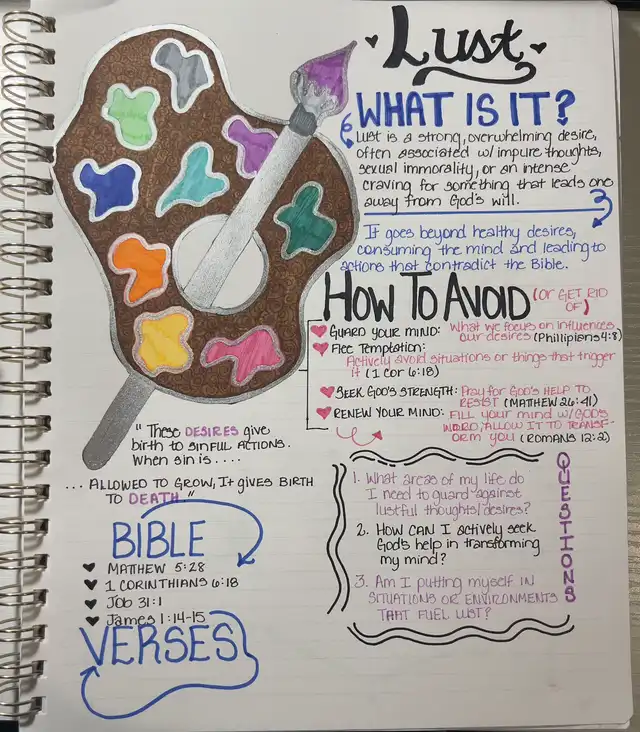 Lust
WHAT IS IT?
Lust is a strong, overwhelming desire,
often associated w/ impure thoughts,
sexual immorality, or an intense
craving for something that leads one
away from God's will.
It goes beyond healthy desires,
consuming the mind and leading to
actions that contradict the Bible.
HOW TO AVOID (OR GET RID OF)
GUARD YOUR MIND: What we focus on influences
our desires (Phillipians 4:8)
Flee Temptation:
Actively avoid situations or things that trigger
it (1 Cor 6:18)
SEEK GOD'S STRENGTH: Pray for GOD'S HELP TO
RESIST (MATHEW 26:41)
RENEW YOUR MIND: FILL YOUR MIND W/GOD'S
WORD, ALLOW IT TO TRANSF-
ORM YOU (ROMANS 12:2)
"These DESIRES give
birth to SINFUL ACTIONS.
When sin is....
... ALLOWED TO GROW, It GIVES BIRTH
TO DEATH."
BIBLE
MATHEW 5:28
1 CORINTHIANS 6:18
Job 31:1
James 1:14-15
VERSES
QUESTIONS
1. What areas of my life do
I need to guard against
lustful thoughts/desires?
2. HOW CAN I actively seek
God's help in transforming
my mind?
3. Am I putting myself IN
SITUATIONS OR ENVIRONMENTS
THAT FUEL LUST?